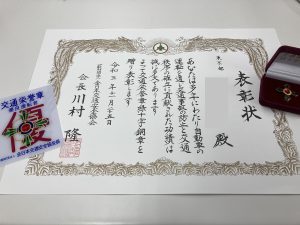 表彰状
東京都
殿
あなたは多年にわたり自動車の
運転を通じ交通事故防止と交通
秩序の確立に貢献された功績は
誠に多大であります
よって交通栄誉章緑十字銅章を
贈り表彰します
令和三年十一月
全日本交通安全協会
会長 川村 隆
交通栄誉章
優
全日本交通安全協会